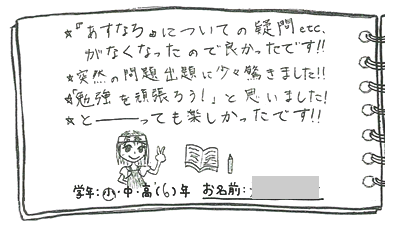 ☆『あすなろ』についての疑問etc.
がなくなったので良かったです!!
☆突然の問題出題に少々驚きました!!
☆「勉強を頑張ろう!」と思いました!
☆と―――っても楽しかったです!!
学年:小・中・高(6)年 お名前: